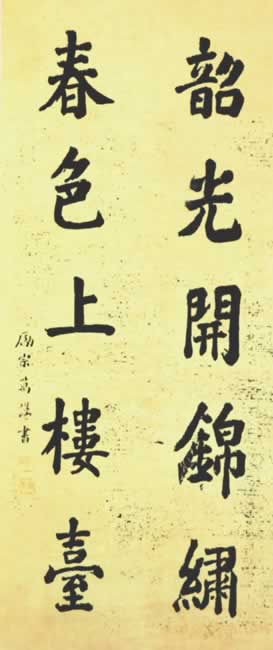 韶光開錦繡
春色上樓臺
励宗萬書